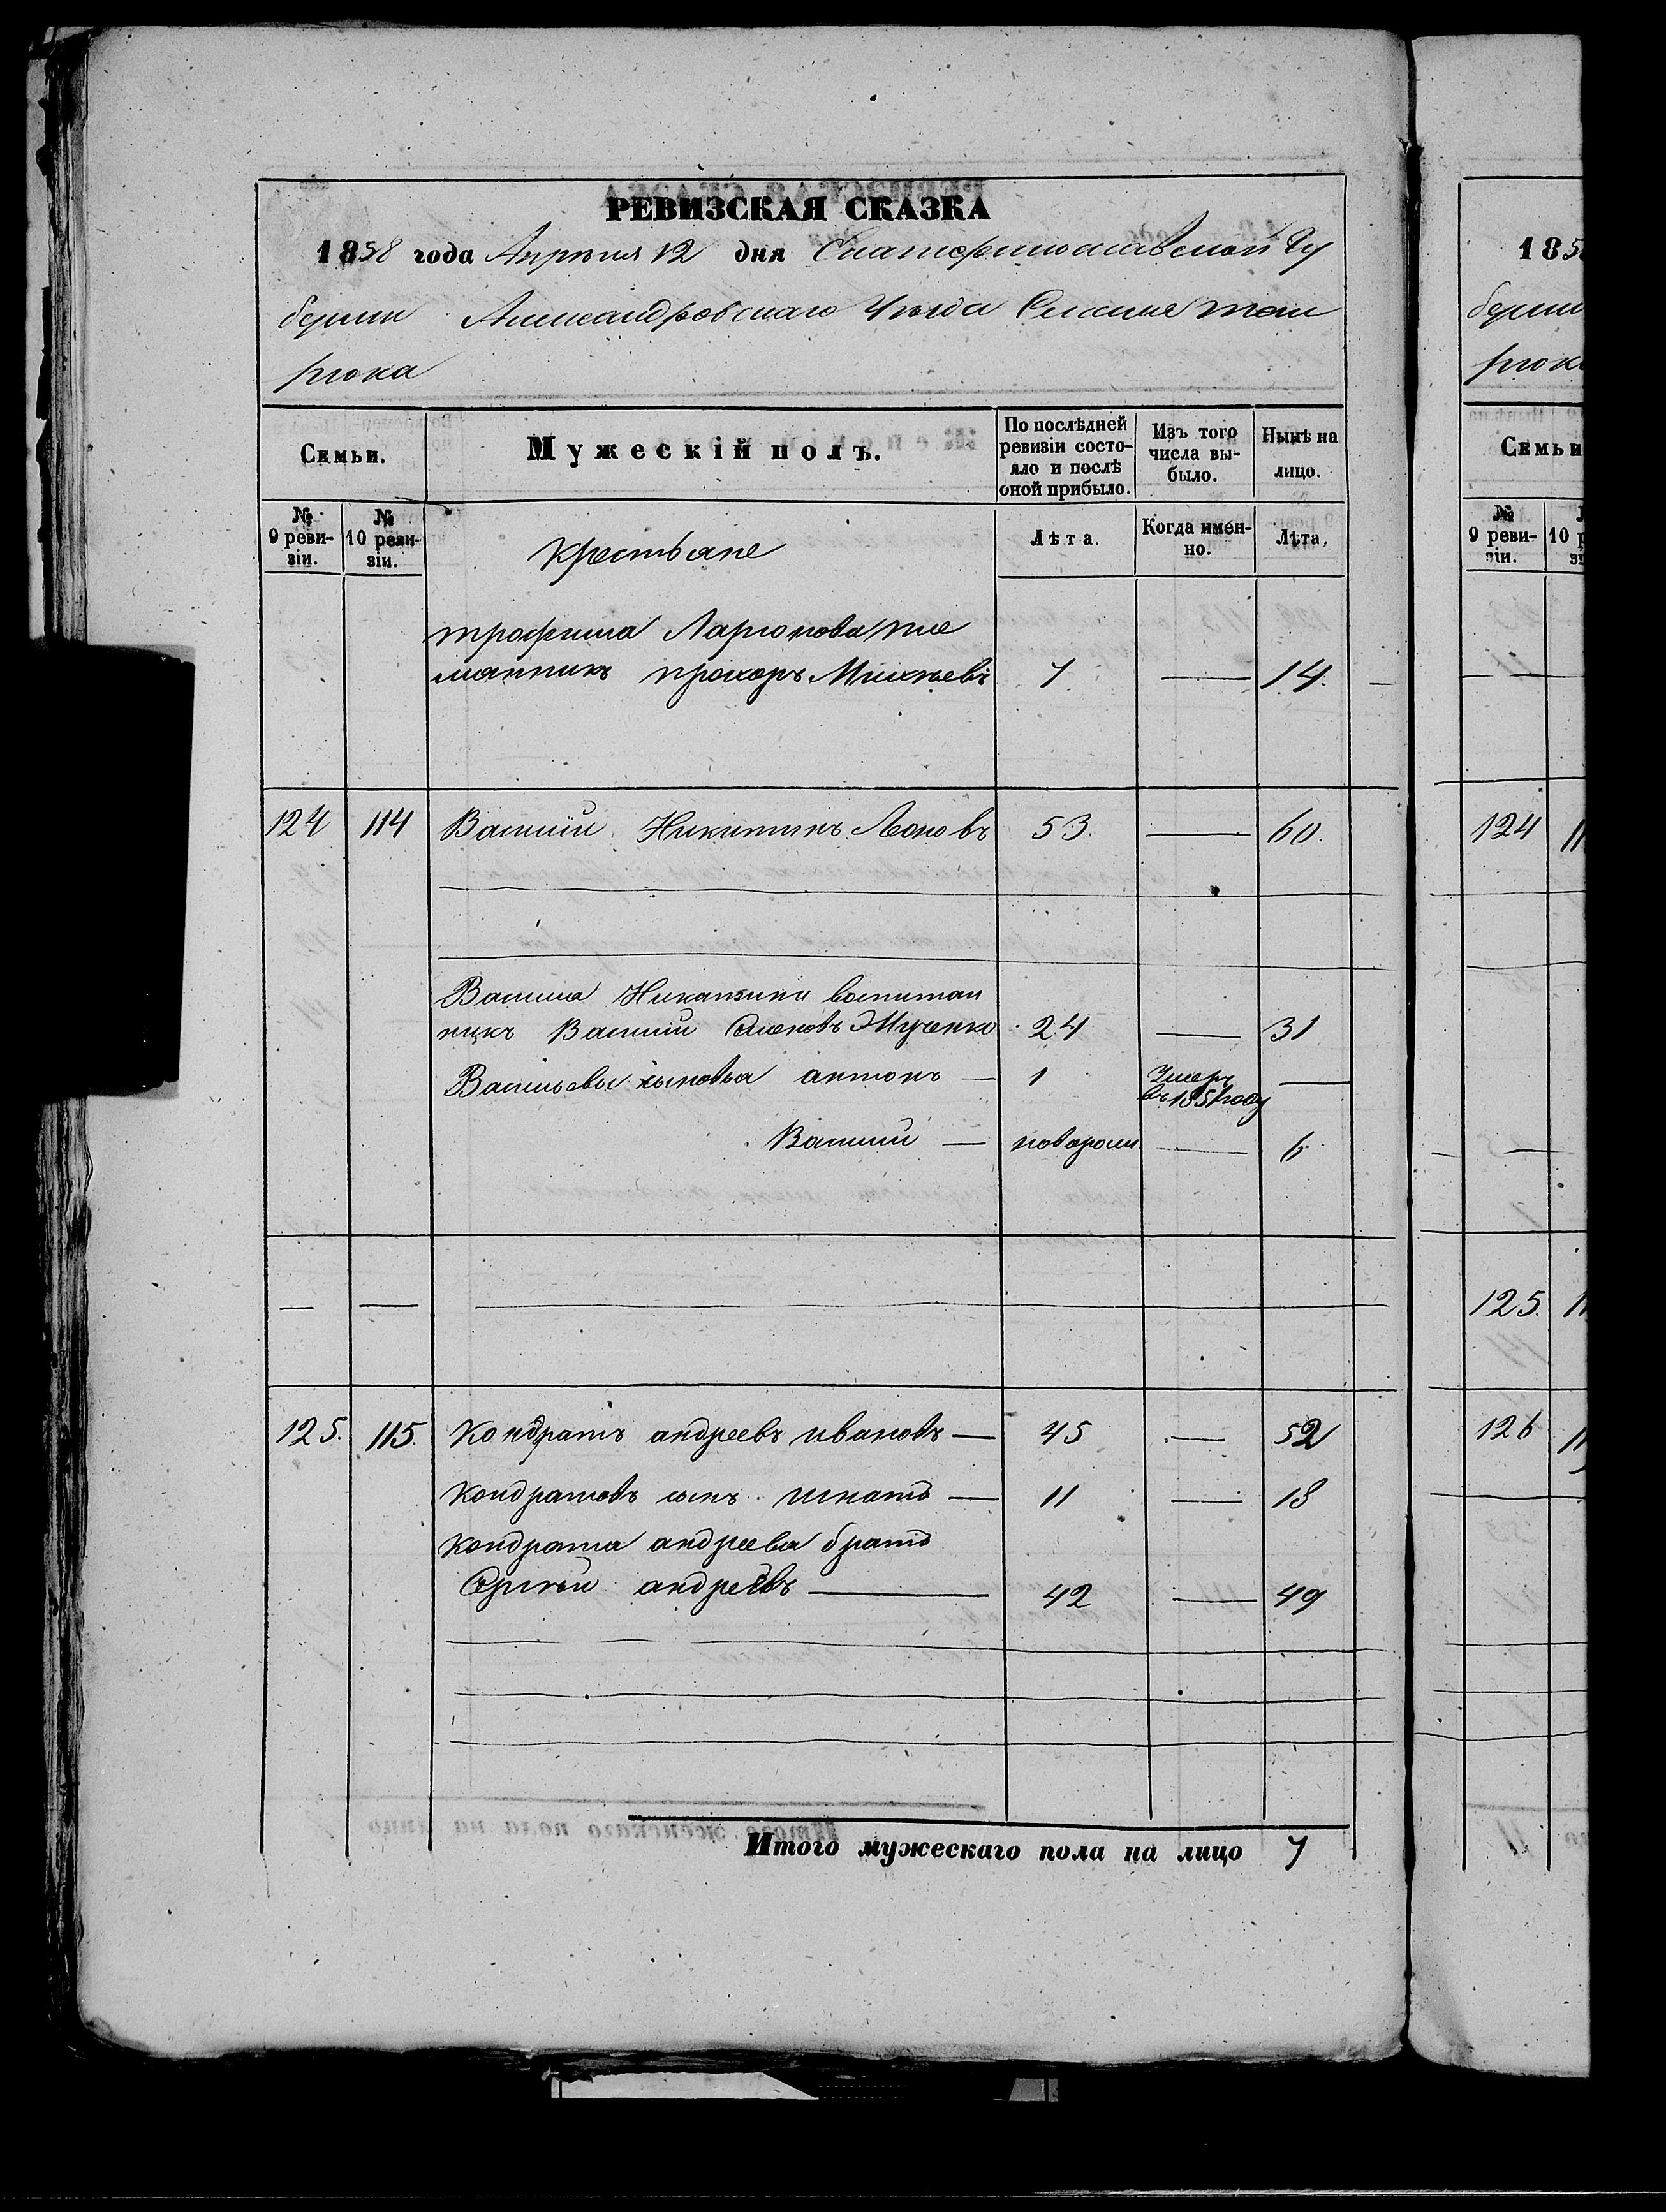 РЕВИЗСКАЯ СКАЗКА
1858 года Апрѣля 12 дня Екатеринославской Гу
берніи Александровскаго Уѣзда Селенія Том
рюка
Семьи. Мужескій полъ. По послѣдней ревизіи состояло и послѣ оной прибыло. Изъ того числа выбыло. Нынѣ на лицо.
№ 9 ревизіи. № 10 ревизіи. Крестьяне Лѣта. Когда именно. Лѣта.
трофима Ларионова пле
мянникъ прохоръ Михѣевъ 7 — 14.
124 114 Василий Никитинъ Леоновъ 53. — 60.
Василия Никитина воспитан
никъ Василий Семеновъ 24 — 31
Васильевы сыновья антонъ — 1 Умеръ въ 1851 году —
Василий — новорожд — 6.
— —
125. 115. Кондратъ андреевъ ивановъ — 45 — 52
Кондратовъ сынъ игнатъ — 11 — 18
Кондрата андреева братъ
Сергѣй андреевъ — 42 — 49
Итого мужескаго пола на лицо 7
185
берніи
рюка
Семьи
№ 9 ревизіи.
124
125.
126